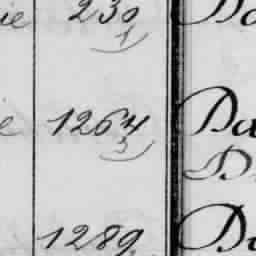 ie 239 Da
1
e 1264 Da
3
D
1289 Da